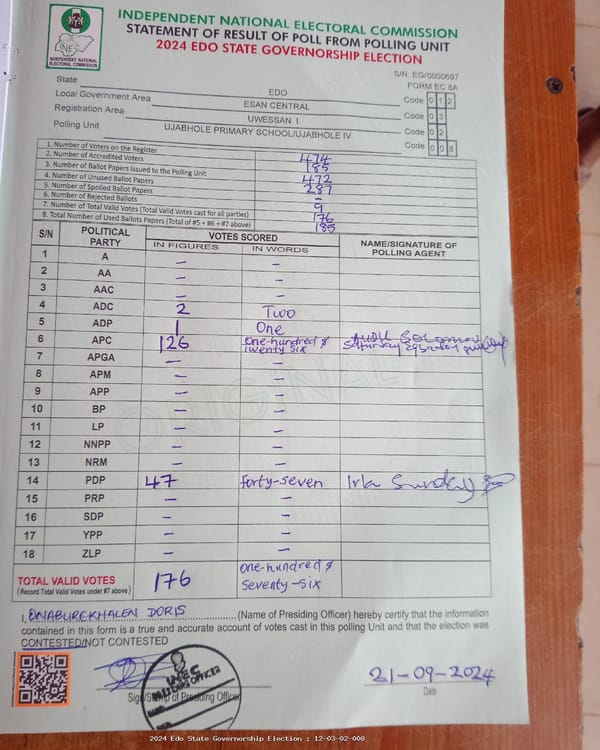 INDEPENDENT NATIONAL ELECTORAL COMMISSION
STATEMENT OF RESULT OF POLL FROM POLLING UNIT
2024 EDO STATE GOVERNORSHIP ELECTION
INEC
INDEPENDENT NATIONAL ELECTORAL COMMISSION
S/N: EG/0000697
FORM EC 8A
State EDO Code 0 1 2
Local Government Area ESAN CENTRAL Code 0 3
Registration Area UWESSAN I Code 0 2
Polling Unit UJABHOLE PRIMARY SCHOOL/UJABHOLE IV Code 0 0 8
1. Number of Voters on the Register 474
2. Number of Accredited Voters 185
3. Number of Ballot Papers Issued to the Polling Unit 472
4. Number of Unused Ballot Papers 287
5. Number of Spoiled Ballot Papers –
6. Number of Rejected Ballots 9
7. Number of Total Valid Votes (Total Valid Votes cast for all parties) 176
8. Total Number of Used Ballots Papers (Total of #5 + #6 + #7 above) 185
S/N POLITICAL PARTY VOTES SCORED NAME/SIGNATURE OF POLLING AGENT
IN FIGURES IN WORDS
1 A – –
2 AA – –
3 AAC – –
4 ADC 2 Two
5 ADP 1 One
6 APC 126 One-hundred & Twenty six
7 APGA – –
8 APM – –
9 APP – –
10 BP – –
11 LP – –
12 NNPP – –
13 NRM – –
14 PDP 47 Forty-seven Sunday
15 PRP – –
16 SDP – –
17 YPP – –
18 ZLP – –
TOTAL VALID VOTES 176 One-hundred & Seventy-six
(Record Total Valid Votes under #7 above)
ORIGINAL
I, ONABUREKHALEN DORIS (Name of Presiding Officer) hereby certify that the information
contained in this form is a true and accurate account of votes cast in this polling Unit and that the election was
CONTESTED/NOT CONTESTED
INEC
Sign/Stamp of Presiding Officer
21-09-2024
Date
2024 Edo State Governorship Election : 12-03-02-008